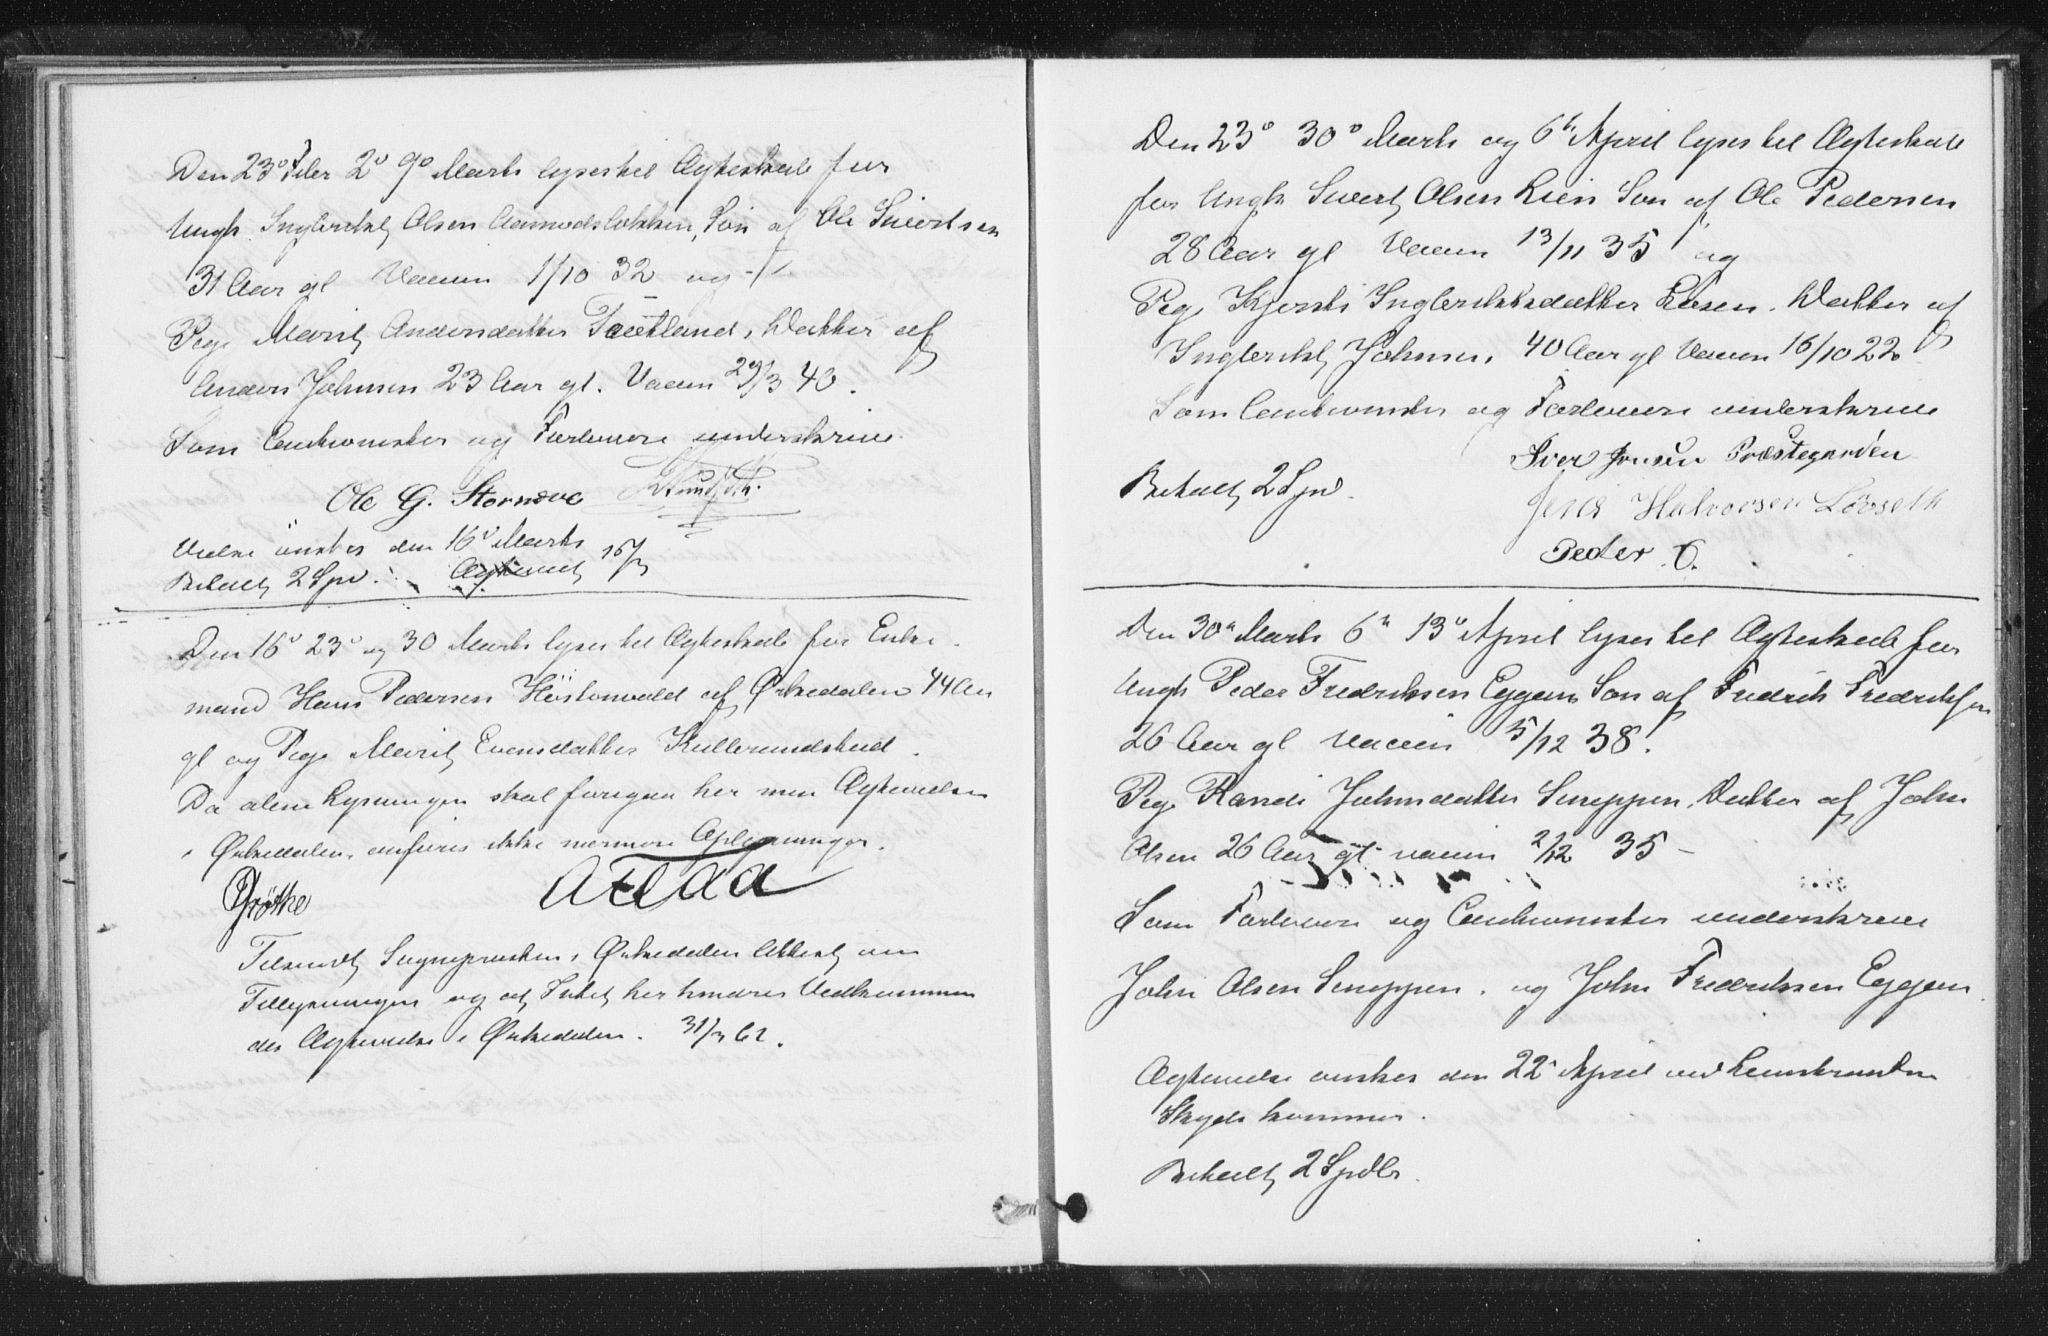 Den 23° Febr 2° 9° Marts lyses til Ægteskab for
Ungk. Ingbrikt Olsen Aamodsløkken, Søn af Ole Sivertsen
31 Aar gl Vaccin 1/10 32 og
Pige Marit Andersdatter Foetland, Datter af
Anders Johnsen 23 Aar gl. Vaccin 29/3 40.
Som Cautionister og Forlovere underskrive
Ole G. Stornæve
Vielse önskes den 16° Marts
Betalt 2 Spd. Ægteviet 16/3
Den 16° 23° og 30 Marts lyses til Ægteskab for Enke-
mand Hans Pedersen af Ørkedalen 44 Aar
gl og Pige Marit Evensdatter
Da alene Lysningen skal foregaa her men Ægtevielsen
i Ørkedalen, anføres ikke nærmere Oplysninger.
Grötke
Tilsendt Sognepræsten i Ørkedalen Attest om
Tillysningen og at Intet her hindrer Vedkommen
des Ægtevielse i Ørkedalen. 31/3 62.
Den 23° 30° Marts og 6te April lyses til Ægteskab
for Ungk Sivert Olsen Lien Søn af Ole Pedersen
28 Aar gl Vaccin 13/11 35 og
Pige Kjersti Ingbriktsdatter Løsen. Datter af
Ingbrikt Johnsen, 40 Aar gl Vaccin 16/10 22
Som Cautionister og Forlovere underskrive
Siver Jonsen Præstegarden
Betalt 2 Spd.
Jens Halvorsen Løvseth
Peder O.
Den 30te Marts 6te 13° April lyses til Ægteskab for
Ungk Peder Fredriksen Eggen Søn af Fredrik Fredriksen
26 Aar gl Vaccin 5/12 38.
Pige Randi Johnsdatter Sneppen, Datter af John
Olsen 26 Aar gl vaccin 2/12 35 –
Som Forlovere og Cautionister underskrive
John Olsen Sneppen. og John Fredriksen Eggen
Ægtevielse ønskes den 22 April ved Leinstranden
Skyds kommer.
Betalt 2 Spdlr.